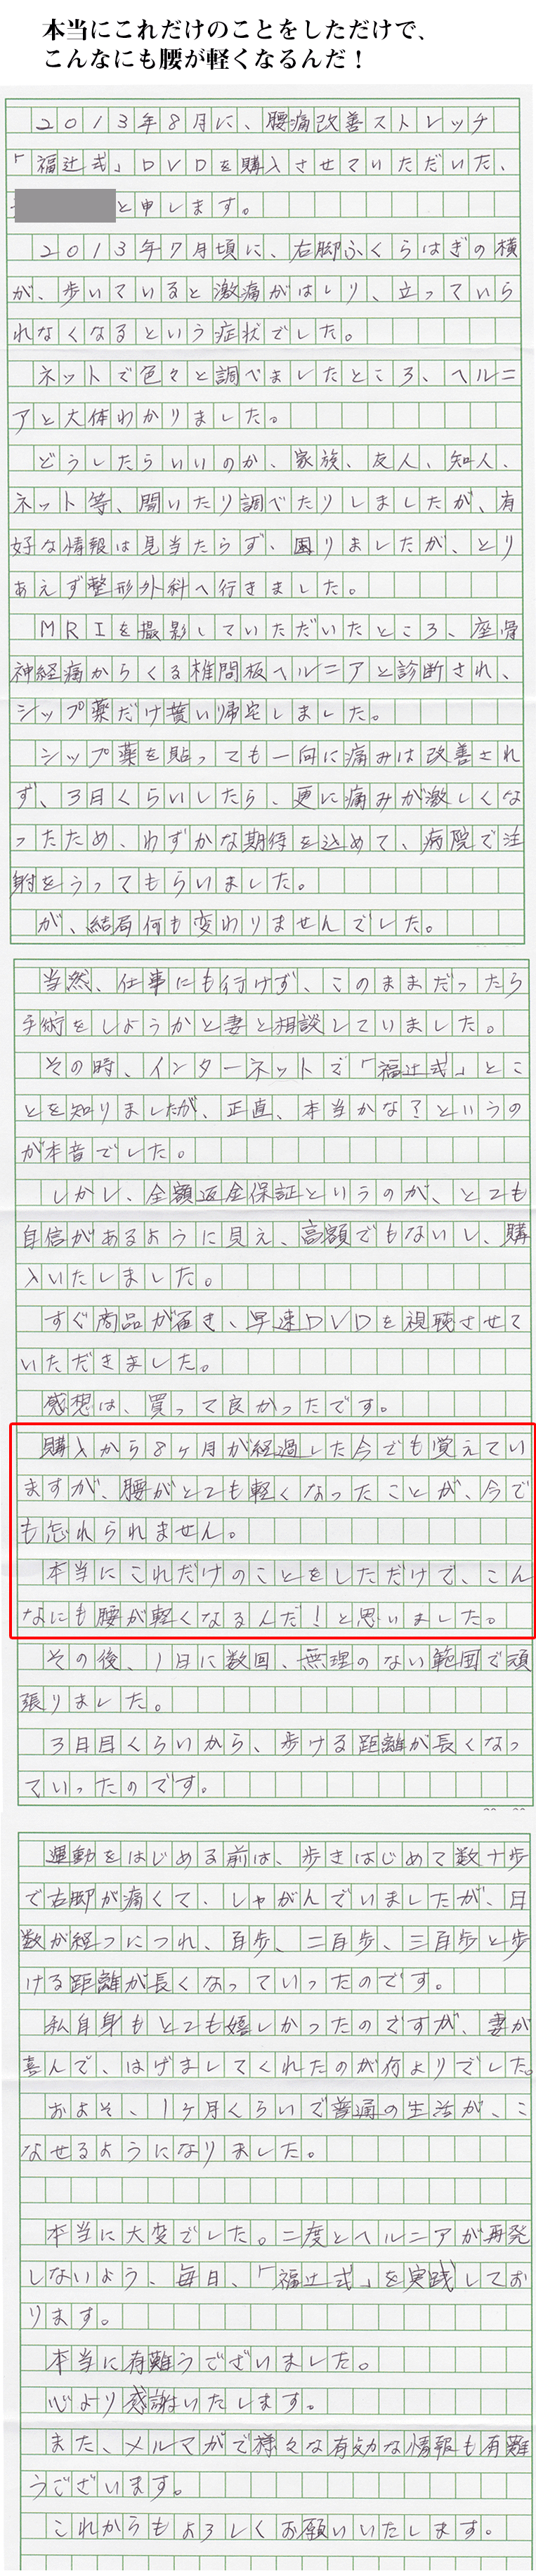 本当にこれだけのことをしただけで、
こんなにも腰が軽くなるんだ！
２０１３年８月に、腰痛改善ストレッチ
「福辻式」ＤＶＤを購入させていただいた、
と申します。
２０１３年７月頃に、右脚ふくらはぎの横
が、歩いていると激痛がはしり、立っていら
れなくなるという症状でした。
ネットで色々と調べましたところ、ヘルニ
アと大体わかりました。
どうしたらいいのか、家族、友人、知人、
ネット等、聞いたり調べたりしましたが、有
好な情報は見当たらず、困りましたが、とり
あえず整形外科へ行きました。
ＭＲＩを撮影していただいたところ、座骨
神経痛からくる椎間板ヘルニアと診断され、
シップ薬だけ貰い帰宅しました。
シップ薬を貼っても一向に痛みは改善され
ず、３日くらいしたら、更に痛みが激しくな
ったため、わずかな期待を込めて、病院で注
射をうってもらいました。
が、結局何も変わりませんでした。
当然、仕事にも行けず、このままだったら
手術をしようかと妻と相談していました。
その時、インターネットで「福辻式」とこ
とを知りましたが、正直、本当かな？というの
が本音でした。
しかし、全額返金保証というのが、とても
自信があるように見え、高額でもないし、購
入いたしました。
すぐ商品が届き、早速ＤＶＤを視聴させて
いただきました。
感想は、買って良かったです。
購入から８ヶ月が経過した今でも覚えてい
ますが、腰がとても軽くなったことが、今で
も忘れられません。
本当にこれだけのことをしただけで、こん
なにも腰が軽くなるんだ！と思いました。
その後、１日に数回、無理のない範囲で頑
張りました。
３日目くらいから、歩ける距離が長くなっ
ていったのです。
運動をはじめる前は、歩きはじめて数十歩
で右脚が痛くて、しゃがんでいましたが、日
数が経つにつれ、百歩、二百歩、三百歩と歩
ける距離が長くなっていったのです。
私自身もとても嬉しかったのですが、妻が
喜んで、はげましてくれたのが何よりでした。
およそ、１ヶ月くらいで普通の生活が、こ
なせるようになりました。
本当に大変でした。二度とヘルニアが再発
しないよう、毎日、「福辻式」を実践してお
ります。
本当に有難うございました。
心より感謝いたします。
また、メルマガで様々な有効な情報も有難
うございます。
これからもよろしくお願いいたします。